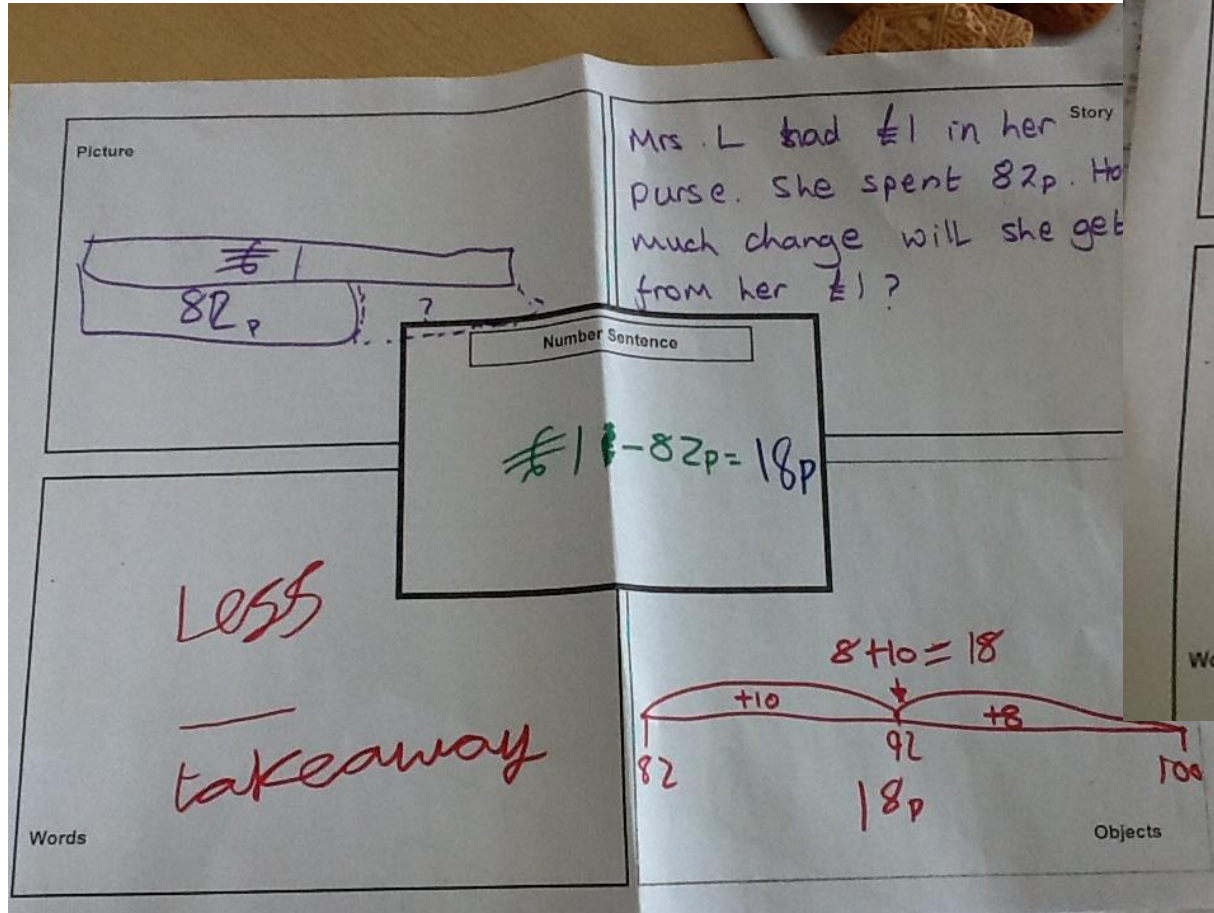 Picture
£1
82p
?
Story
Mrs. L had £1 in her
purse. She spent 82p. Ho
much change will she get
from her £1?
Number Sentence
£1 -82p= 18p
Less
—
takeaway
Words
8+10=18
+10
+8
82
92
100
18p
Objects
Wo